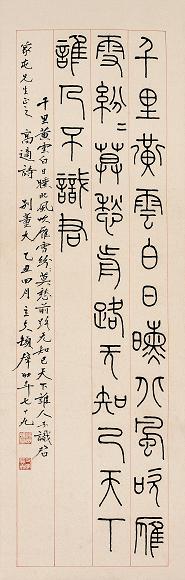 千里黃雲白日曛北風吹雁
雪紛〻莫愁前路无知己天下
誰人不識君
千里黃雲白日曛北風吹雁雪紛〻莫愁前路无知己天下誰人不識君
家屯先生正之 高適詩 別董大 乙丑四月 時年七十九